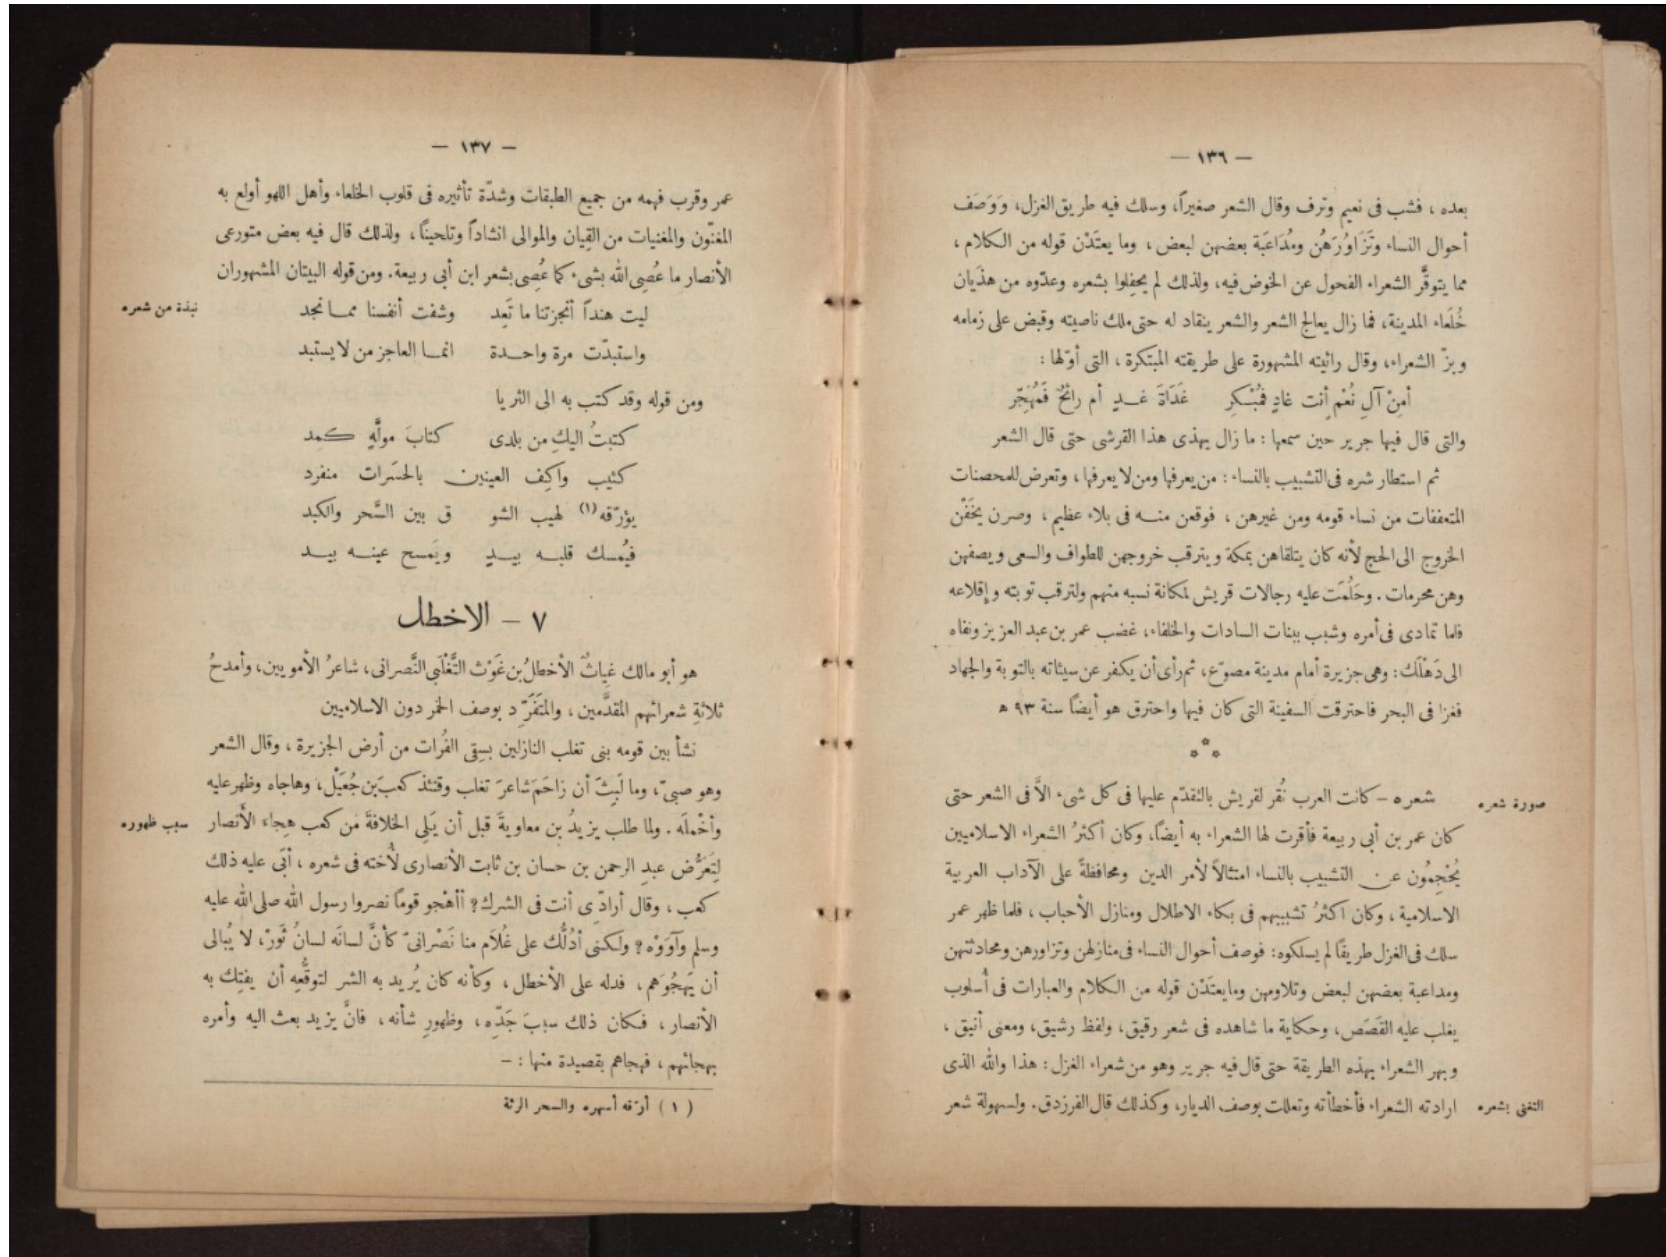 — ١٣٦ —
بعده ، فشب فى نعيم وترف وقال الشعر صغيراً، وسلك فيه طريق الغزل، وَوَصَف
أحوال النساء وتَزَاوُرَهُن ومُدَاعَبَة بعضهن لبعض ، وما يعتَدْن قوله من الكلام ،
مما يتوقَّر الشعراء الفحول عن الخوض فيه، ولذلك لم يحفِلوا بشعره وعدّوه من هذَيان
خُلَعاء المدينة، فما زال يعالج الشعر والشعر ينقاد له حتى ملك ناصيته وقبض على زمامه
وبزّ الشعراء، وقال رائيته المشهورة على طريقته المبتكرة ، التى أوّلها :
أمِنْ آلِ نُعْم أنت غادٍ فمُبْكِر غَدَاةَ غدٍ أم رائحٌ فَمُهَجِّر
والتى قال فيها جرير حين سمعها : ما زال يهذى هذا القرشى حتى قال الشعر
ثم استطار شره فى التشبيب بالنساء : من يعرفها ومن لا يعرفها ، وتعرض للمحصنات
المتعففات من نساء قومه ومن غيرهن ، فوقعن منه فى بلاء عظيم ، وصرن يخَفْن
الخروج الى الحج لأنه كان يتلقاهن بمكة ويترقب خروجهن للطواف والسعى ويصفهن
وهن محرمات . وحَلُمَت عليه رجالات قريش لمكانة نسبه منهم ولترقب توبته وإقلاعه
فلما تمادى فى أمره وشبب ببنات السادات والخلفاء، غضب عمر بن عبد العزيز ونفاه
الى دَهْلَك: وهى جزيرة أمام مدينة مصوّع، ثم رأى أن يكفر عن سيئاته بالتوبة والجهاد
فغزا فى البحر فاحترقت السفينة التى كان فيها واحترق هو أيضًا سنة ٩٣ ﻫ
***
صورة شعره
شعره – كانت العرب تُقر لقريش بالتقدّم عليها فى كل شىء الاَّ فى الشعر حتى
كان عمر بن أبى ربيعة فأقرت لها الشعراء به أيضًا، وكان أكثرُ الشعراء الاسلاميين
يُحْجِمُون عن التشبيب بالنساء امتثالاً لأمر الدين ومحافظةً على الآداب العربية
الاسلامية ، وكان اكثرُ تشبيبهم فى بكاء الاطلال ومنازل الأحباب ، فلما ظهر عمر
سلك فى الغزل طريقًا لم يسلكوه: فوصف أحوال النساء فى منازلهن وتزاورهن ومحادثتهن
ومداعبة بعضهن لبعض وتلاومهن وما يعتَدْن قوله من الكلام والعبارات فى أسلوب
يغلب عليه القَصَص، وحكاية ما شاهده فى شعر رقيق، ولفظ رشيق، ومعنى أنيق ،
وبهر الشعراء بهذه الطريقة حتى قال فيه جرير وهو من شعراء الغزل : هذا والله الذى
التغنى بشعره
ارادته الشعراء فأخطأته وتعللت بوصف الديار، وكذلك قال الفرزدق. ولسهولة شعر
— ١٣٧ —
عمر وقرب فهمه من جميع الطبقات وشدّة تأثيره فى قلوب الخلعاء وأهل اللهو أولع به
المغنّون والمغنيات من القِيان والموالى انشاداً وتلحيناً ، ولذلك قال فيه بعض متورعى
الأنصار ما عُصِى الله بشىء كما عُصِى بشعر ابن أبى ربيعة. ومن قوله البيتان المشهوران
نبذة من شعره
ليت هنداً أنجزتنا ما تَعِد وشفت أنفسنا مما نجد
واستبدّت مرة واحدة انما العاجز من لا يستبد
ومن قوله وقد كتب به الى الثريا
كتبتُ اليكِ من بلدى كتابَ مولَّهٍ كمِد
كئيب واكِف العينين بالحسَرات منفرد
يؤرّقه (١) لهيب الشو ق بين السَّحر والكبد
فيُمسك قلبه بيدٍ ويَمسح عينه بيد
٧ – الاخطل
هو أبو مالك غياثٌ الأخطلُ بن غَوْث التَّغْلَبى النَّصرانى، شاعرُ الأمويين، وأمدحُ
ثلاثةِ شعرائهم المقدَّمين ، والمتَفَرِّد بوصف الخمر دون الاسلاميين
نشأ بين قومه بنى تغلب النازلين بسِقى الفُرات من أرض الجزيرة ، وقال الشعر
وهو صبىّ، وما لَبِثَ أن زاحَمَ شاعرَ تغلب وقتئذ كعبَ بن جُعَيْل، وهاجاه وظهر عليه
سبب ظهوره
وأخْملَه . ولما طلب يزيدُ بن معاويةَ قبل أن يَلِى الخلافةَ من كعب هِجاءَ الأنصار
لِتَعَرُّض عبدِ الرحمن بن حسان بن ثابت الأنصارى لأُخته فى شعره ، أبَى عليه ذلك
كعب ، وقال أرادّى أنت فى الشرك؟ أأهْجو قومًا نصروا رسول الله صلى الله عليه
وسلم وآوَوْه؟ ولكنى أدُلُّك على غُلاَم منا نَصْرانىّ كأنَّ لسانَه لسانُ ثَورْ، لا يُبالى
أن يَهجُوَهم ، فدله على الأخطل ، وكأنه كان يُريد به الشر لتوقُّعِه أن يفتِك به
الأنصار ، فكان ذلك سببَ جَدّه ، وظهورِ شأنه ، فانَّ يزيد بعث اليه وأمره
بهجائهم ، فهجاهم بقصيدة منها : –
(١) أرّقه أسهره والسحر الرئة